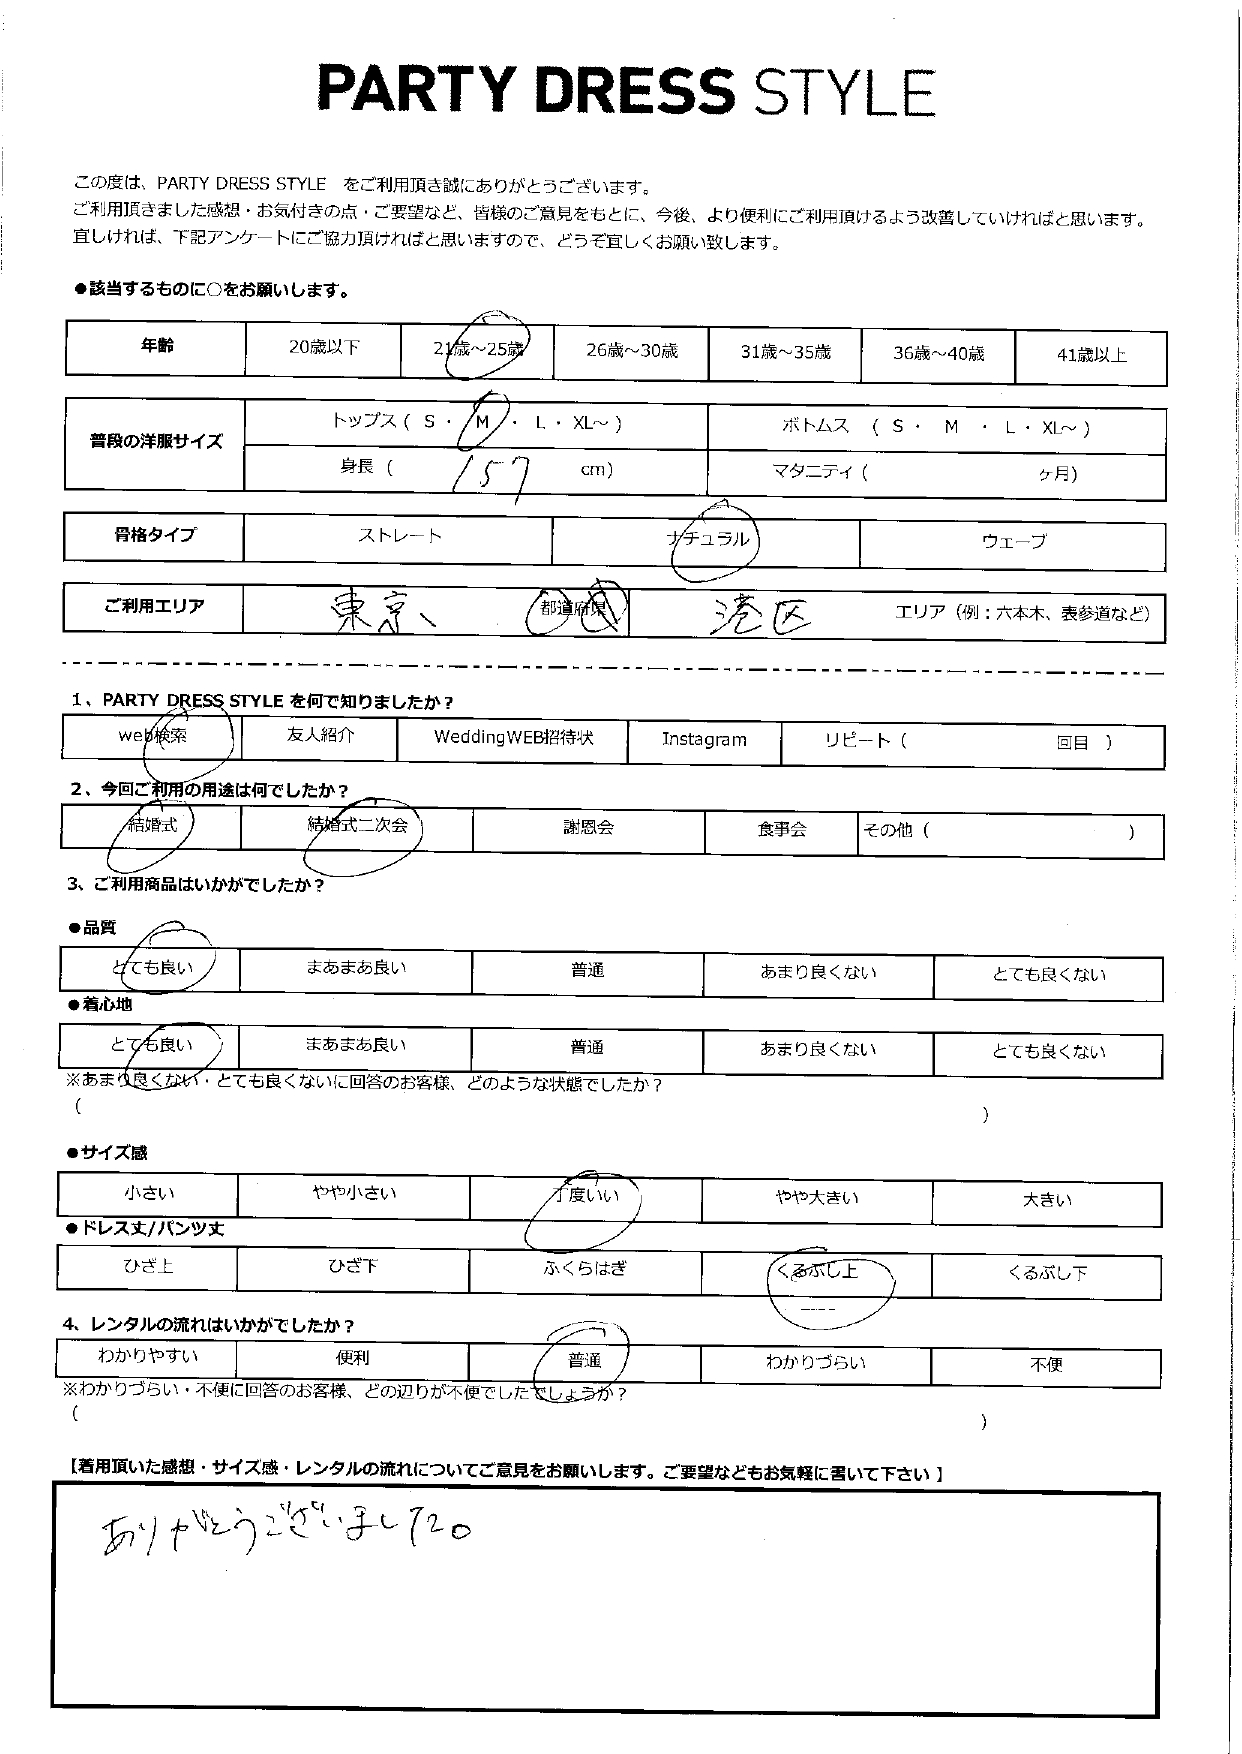 PARTY DRESS STYLE
この度は、PARTY DRESS STYLE をご利用頂き誠にありがとうございます。
ご利用頂きました感想・お気付きの点・ご要望など、皆様のご意見をもとに、今後、より便利にご利用頂けるよう改善していければと思います。
宜しければ、下記アンケートにご協力頂ければと思いますので、どうぞ宜しくお願い致します。
●該当するものに○をお願いします。
年齢 20歳以下 21歳～25歳 26歳～30歳 31歳～35歳 36歳～40歳 41歳以上
普段の洋服サイズ トップス ( S ・ M ・ L ・ XL～ ) ボトムス ( S ・ M ・ L ・ XL～ )
身長 ( 157 cm) マタニティ ( ヶ月)
骨格タイプ ストレート ナチュラル ウェーブ
ご利用エリア 東京、 都道府県 港区 エリア（例：六本木、表参道など）
1、PARTY DRESS STYLE を何で知りましたか？
web検索 友人紹介 WeddingWEB招待状 Instagram リピート ( 回目 )
2、今回ご利用の用途は何でしたか？
結婚式 結婚式二次会 謝恩会 食事会 その他 ( )
3、ご利用商品はいかがでしたか？
●品質
とても良い まあまあ良い 普通 あまり良くない とても良くない
●着心地
とても良い まあまあ良い 普通 あまり良くない とても良くない
※あまり良くない・とても良くないに回答のお客様、どのような状態でしたか？
( )
●サイズ感
小さい やや小さい 丁度いい やや大きい 大きい
●ドレス丈/パンツ丈
ひざ上 ひざ下 ふくらはぎ くるぶし上 くるぶし下
4、レンタルの流れはいかがでしたか？
わかりやすい 便利 普通 わかりづらい 不便
※わかりづらい・不便に回答のお客様、どの辺りが不便でしたでしょうか？
( )
【着用頂いた感想・サイズ感・レンタルの流れについてご意見をお願いします。ご要望などもお気軽に書いて下さい 】
ありがとうございました。